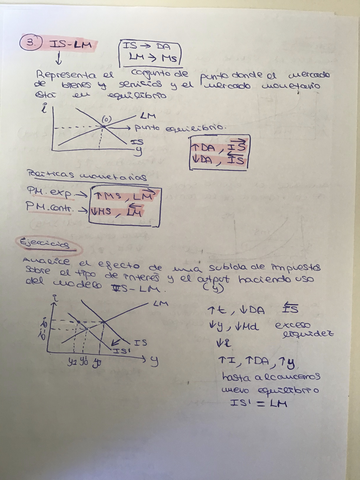 3 IS-LM
IS → DA
LM → MS
Representa el conjunto de punto donde el mercado
de bienes y servicios y el mercado monetario
en equilibrio
i
(0)
LM
punto equilibrio.
IS
y
↑DA, IS
↓DA, IS
Políticas monetarias
PM. exp → ↑MS, LM
PM. contr. → ↓MS, LM
Ejercicios
Analice el efecto de una subida de impuestos
sobre el tipo de interés y el output haciendo uso
(y)
del modelo IS-LM.
LM
IS
IS'
y
↑t, ↓DA IS
↓y, ↓Md exceso
liquidez
↓i
↑I, ↑DA, ↑y
hasta alcancemos
nuevo equilibrio
IS' = LM